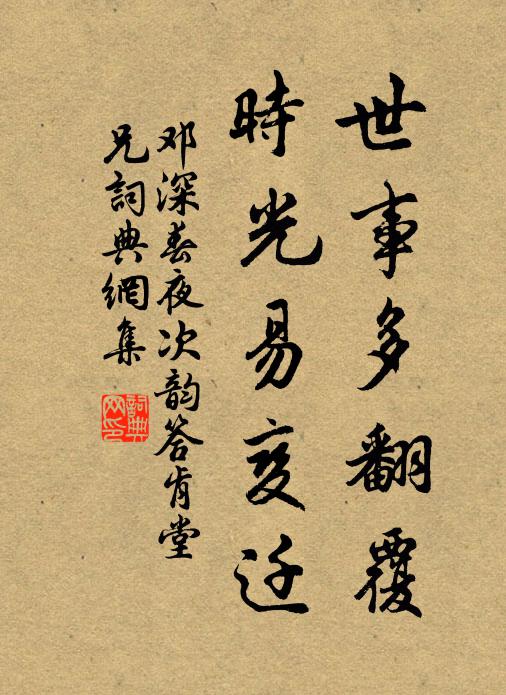 世事多翻覆
時光易变迁
邓深春夜次韵答肯堂
兄詞典網集
詞典网印